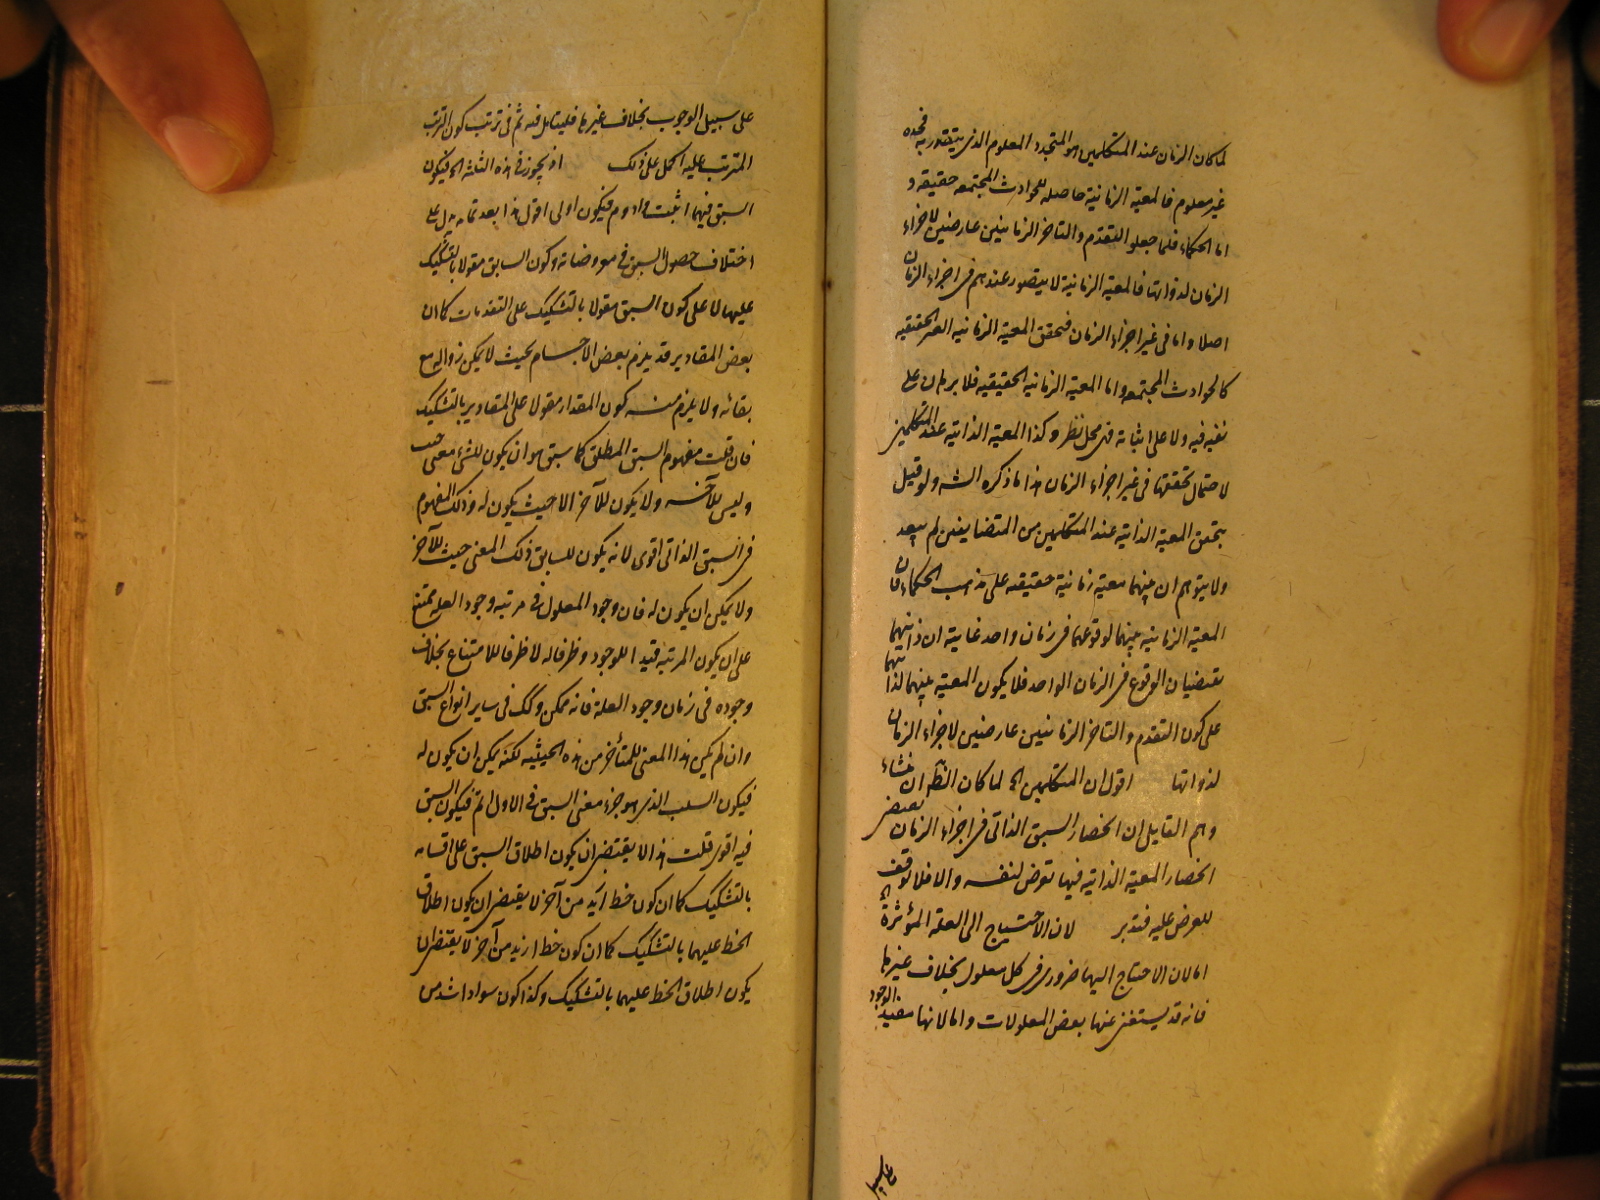 لما كان الزمان عند المتكلمين هو المتجدد المعلوم الذى يتقدر به متجدد
غير معلوم فالمعية الزمانية حاصله للحوادث المجتمعه حقيقه و
اما الحكماء فلما جعلوا التقدم والتاخر الزمانيين عارضين لاجزاء
الزمان لذواتها فالمعية الزمانية لا يتصور عندهم فى اجزاء الزمان
اصلا واما فى غير اجزاء الزمان فتحقق المعية الزمانيه الغير الحقيقيه
كالحوادث المجتمعه واما المعية الزمانيه الحقيقيه فلا برهان على
نفيه فيه ولا على اثباته فهى محل نظر وكذا المعية الذاتيه عند المتكلمين
لاحتمال تحققها فى غير اجزاء الزمان هذا ما ذكره الشه ولو قيل
بتحقق المعية الذاتية عند المتكلمين من المتضايفين لم يبعد
ولا يتوهم ان بينهما معية زمانية حقيقه على مذهب الحكماء فان
المعية الزمانيه بينهما لوقوعهما فى زمان واحد غايته ان ذاتيهما
يقتضيان الوقوع فى الزمان الواحد فلا يكون المعيه بينهما لذاتيهما
على كون التقدم والتاخر الزمانيين عارضين لاجزاء الزمان
لذواتها اقول ان المتكلمين الخ لما كان الظ ان منشاء
وهم القايل ان انحصار السبق الذاتى فى اجزاء الزمان يقتضى
انحصار المعية الذاتيه فيها تعرض لنفسه والا فلا توقف
للعرض عليه فتدبر لان الاحتياج الى العلة المؤثرة الخ
اما لان الاحتياج اليها ضرورى فى كل معلول بخلاف غيرها
فانه قد يستغنى عنها بعض المعلولات واما لانها مفيد الوجود
على سبيل
على سبيل الوجوب بخلاف غيرها فليتامل فيه ثم فى ترتب كون الترتب
المترتب عليه اكمل على ذلك اذ يجوز فى هذه الثلثة الخ فيكون
السبق فيهما اثبت وادوم فيكون اولى اقول هذا بعد تمامه يدل على
اختلاف حصول السبق فى معروضاته وكون السابق مقولا بالتشكيك
عليها لا على كون السبق مقولا بالتشكيك على التقدمات كما ان
بعض المقادير قد يلزم بعض الاجسام بحيث لا يمكن زواله مع
بقائه ولا يلزم منه كون المقدار مقولا على المقادير بالتشكيك
فان قلت مفهوم السبق المطلق كما سبق هو ان يكون للشىء معنى حيث
وليس للآخر ولا يكون للآخر الا حيث يكون له وذلك المفهوم
فى السبق الذاتى اقوى لانه يكون للسابق ذلك المعنى حيث للآخر
ولا يمكن ان يكون له فان وجود المعلول فى مرتبه وجود العله ممتنع
على ان يكون المرتبه قيدا للوجود وظرفا له لا ظرفا للامتناع بخلاف
وجوده فى زمان وجود العلة فانه ممكن وكك فى ساير انواع السبق
وان لم يكن هذا المعنى للمتأخر من هذه الحيثيه لكنه يمكن ان يكون له
فيكون السلب الذى هو جزء معنى السبق فى الاول اتم فيكون السبق
فيه اقوى قلت هذا لا يقتضى ان يكون اطلاق السبق على اقسامه
بالتشكيك كما ان كون خط ازيد من آخر لا يقتضى ان يكون اطلاق
الخط عليهما بالتشكيك كما ان كون خط ازيد من آخر لا يقتضى ان
يكون اطلاق الخط عليهما بالتشكيك وكذا كون سواد اشد من